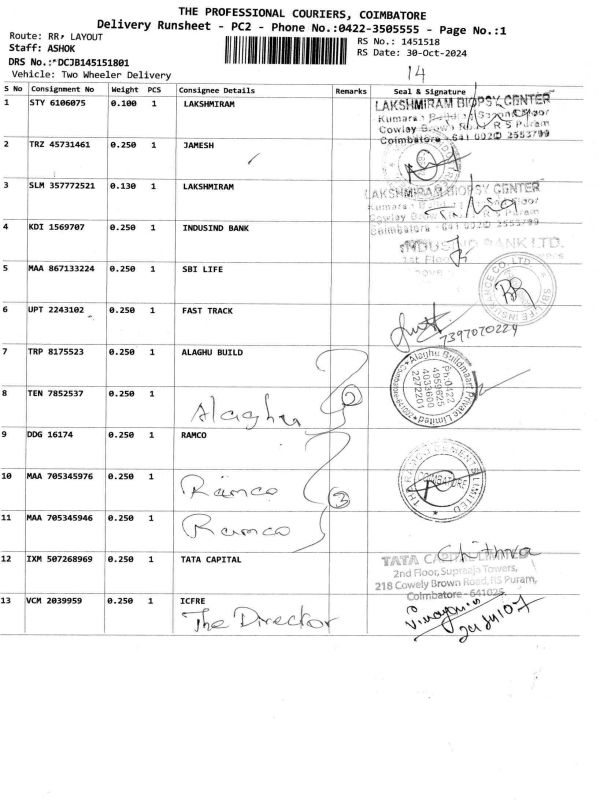 THE PROFESSIONAL COURIERS, COIMBATORE
Delivery Runsheet - PC2 - Phone No.:0422-3505555 - Page No.:1
Route: RR, LAYOUT
RS No.: 1451518
Staff: ASHOK
RS Date: 30-Oct-2024
DRS No.: DCJB145151801
Vehicle: Two Wheeler Delivery
14
S No Consignment No Weight PCS Consignee Details Remarks Seal & Signature
1 STY 6106075 0.100 1 LAKSHMIRAM
LAKSHMIRAM BIOPSY CENTER
Coimbatore - 641 002 2553799
2 TRZ 45731461 0.250 1 JAMESH
3 SLM 357772521 0.130 1 LAKSHMIRAM
LAKSHMIRAM BIOPSY CENTER
4 KDI 1569707 0.250 1 INDUSIND BANK
INDUSIND BANK LTD.
1st Floor
5 MAA 867133224 0.250 1 SBI LIFE
SBI LIFE INSURANCE CO. LTD
6 UPT 2243102 0.250 1 FAST TRACK
7397070224
7 TRP 8175523 0.250 1 ALAGHU BUILD
Alaghu Buildmaart Private Limited
Ph:0422
4959625
4033600
2272201
8 TEN 7852537 0.250 1
Alaghu
2
9 DDG 16174 0.250 1 RAMCO
10 MAA 705345976 0.250 1
Ramco
3
11 MAA 705345946 0.250 1
Ramco
12 IXM 507268969 0.250 1 TATA CAPITAL
Chithra
TATA CAPITAL LIMITED
2nd Floor, Supraaja Towers,
218 Cowely Brown Road, RS Puram,
Coimbatore - 641025.
13 VCM 2039959 0.250 1 ICFRE
The Director